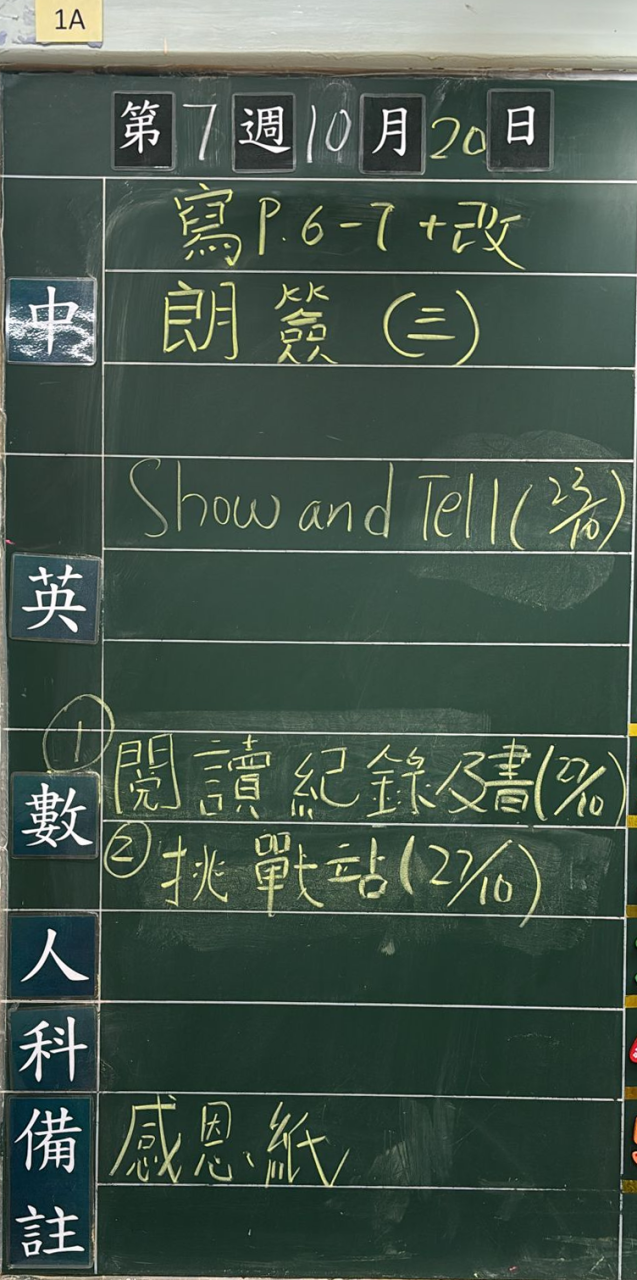 1A
第7週10月20日
寫P.6-7+改
中
朗簽(三)
Show and Tell(23/10)
英
① 閱讀紀錄及書(27/10)
數
② 挑戰站(27/10)
人
科
備註
感恩紙